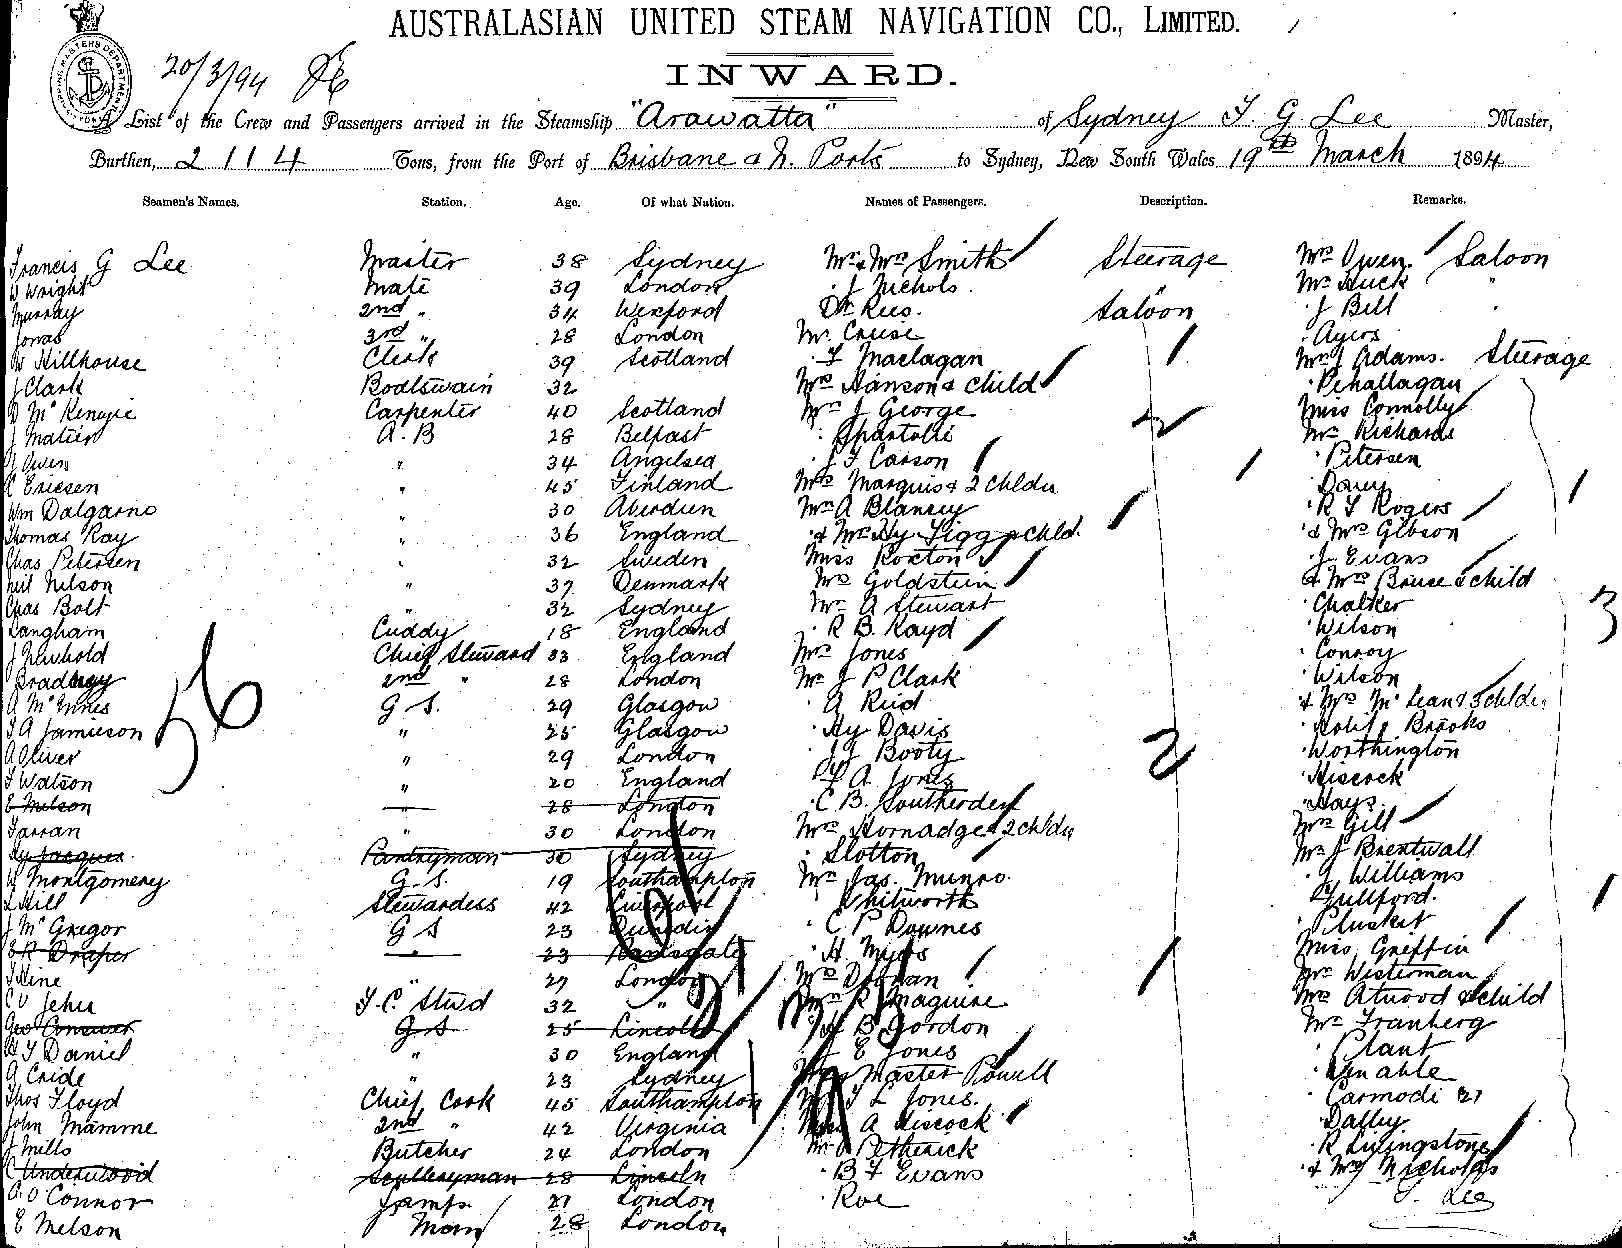 AUSTRALASIAN UNITED STEAM NAVIGATION CO., LIMITED.
INWARD.
20/3/94
A List of the Crew and Passengers arrived in the Steamship "Arawatta" of Sydney F. G Lee Master,
Burthen, 2114 Tons, from the Port of Brisbane & N. Ports to Sydney, New South Wales 19th March 1894
Seamen's Names. Station. Age. Of what Nation. Names of Passengers. Description. Remarks.
Francis G Lee Master 38 Sydney Mr & Mrs Smith Steerage Mrs Owen. Saloon
W Wright Mate 39 London " J Nichols. " Mr Huck "
Murray 2nd " 34 Wexford Dr Rees. Saloon " J Bell
Jonas 3rd " 28 London Mr. Cruse " Ayers
W Hillhouse Clerk 39 Scotland " F Maclagan Mr J Adams. Steerage
J Clark Boatswain 32 Mrs Hanson & child
D McKenzie Carpenter 40 Scotland Mr J George Miss Connolly
J Matier A.B 28 Belfast Mr Richards
Owen " 34 Angelsea " J F Carson " Petersen
C Ericsen " 45 Finland Mrs Marquis & 2 chldn
Wm Dalgarno " 30 Aberdeen Mr A Blancey " R F Rogers
Thomas Ray " 36 England & Mrs Gibson
Chas Petersen " 32 Sweden Miss Roxton " J Evans
Neil Nelson " 37 Denmark Mrs Goldstein & Mrs Bruce & child
Chas Bolt " 32 Sydney Mr A Stewart " Chalker
Langham Cuddy 18 England " R B. Kayd " Wilson
J Newbold Chief Steward 33 England Mrs Jones " Conroy
Bradley 2nd " 28 London Mr J P Clark " Wilson
A McInnes G S. 29 Glasgow " A Reid & Mrs McLean & 3 chldn
J A Jamieson " 25 Glasgow " Hy Davis " Brooks
A Oliver " 29 London " J J Booty " Worthington
F Watson " 20 England " A. Jones " Hiscock
E Melson " 28 London " C B. Southerden " Hays
Farran " 30 London Mrs Hornadge & 2 chldn Mrs Gill
Hy Jacques Pantryman 30 Sydney " Slotton Mr J Brentwall
W Montgomery G. S. 19 Southampton Mr Jas. Munro. " J Williams
Hill Stewardess 42 Liverpool " Whitworth " Fullford.
J McGregor G S 23 Dunedin " C P Downes " Pluskit
E R Draper " 23 Ramsgate " H. Myers Miss Griffin
Hine " 27 London Mr Westerman
C V Jehu F.C. Stwd 32 " Mr R Maguire Mrs Atwood & child
G S 25 Lincoln " B Gordon Mr Franberg
F Daniel " 30 England " E Jones " Plant
A Cride " 23 Sydney Master Powell
Thos Floyd Chief Cook 45 Southampton " F L Jones. " Carmodi
John Mamme 2nd " 42 Virginia A Hiscock " Dalley
J Mills Butcher 24 London Petherick " R Livingstone
C Underwood Sculleryman 28 Lincoln " B F Evans & Mrs Nicholls
A O'Connor Lamps 21 London " Roe Lee
E Melson Man 28 London
56
2
2
3